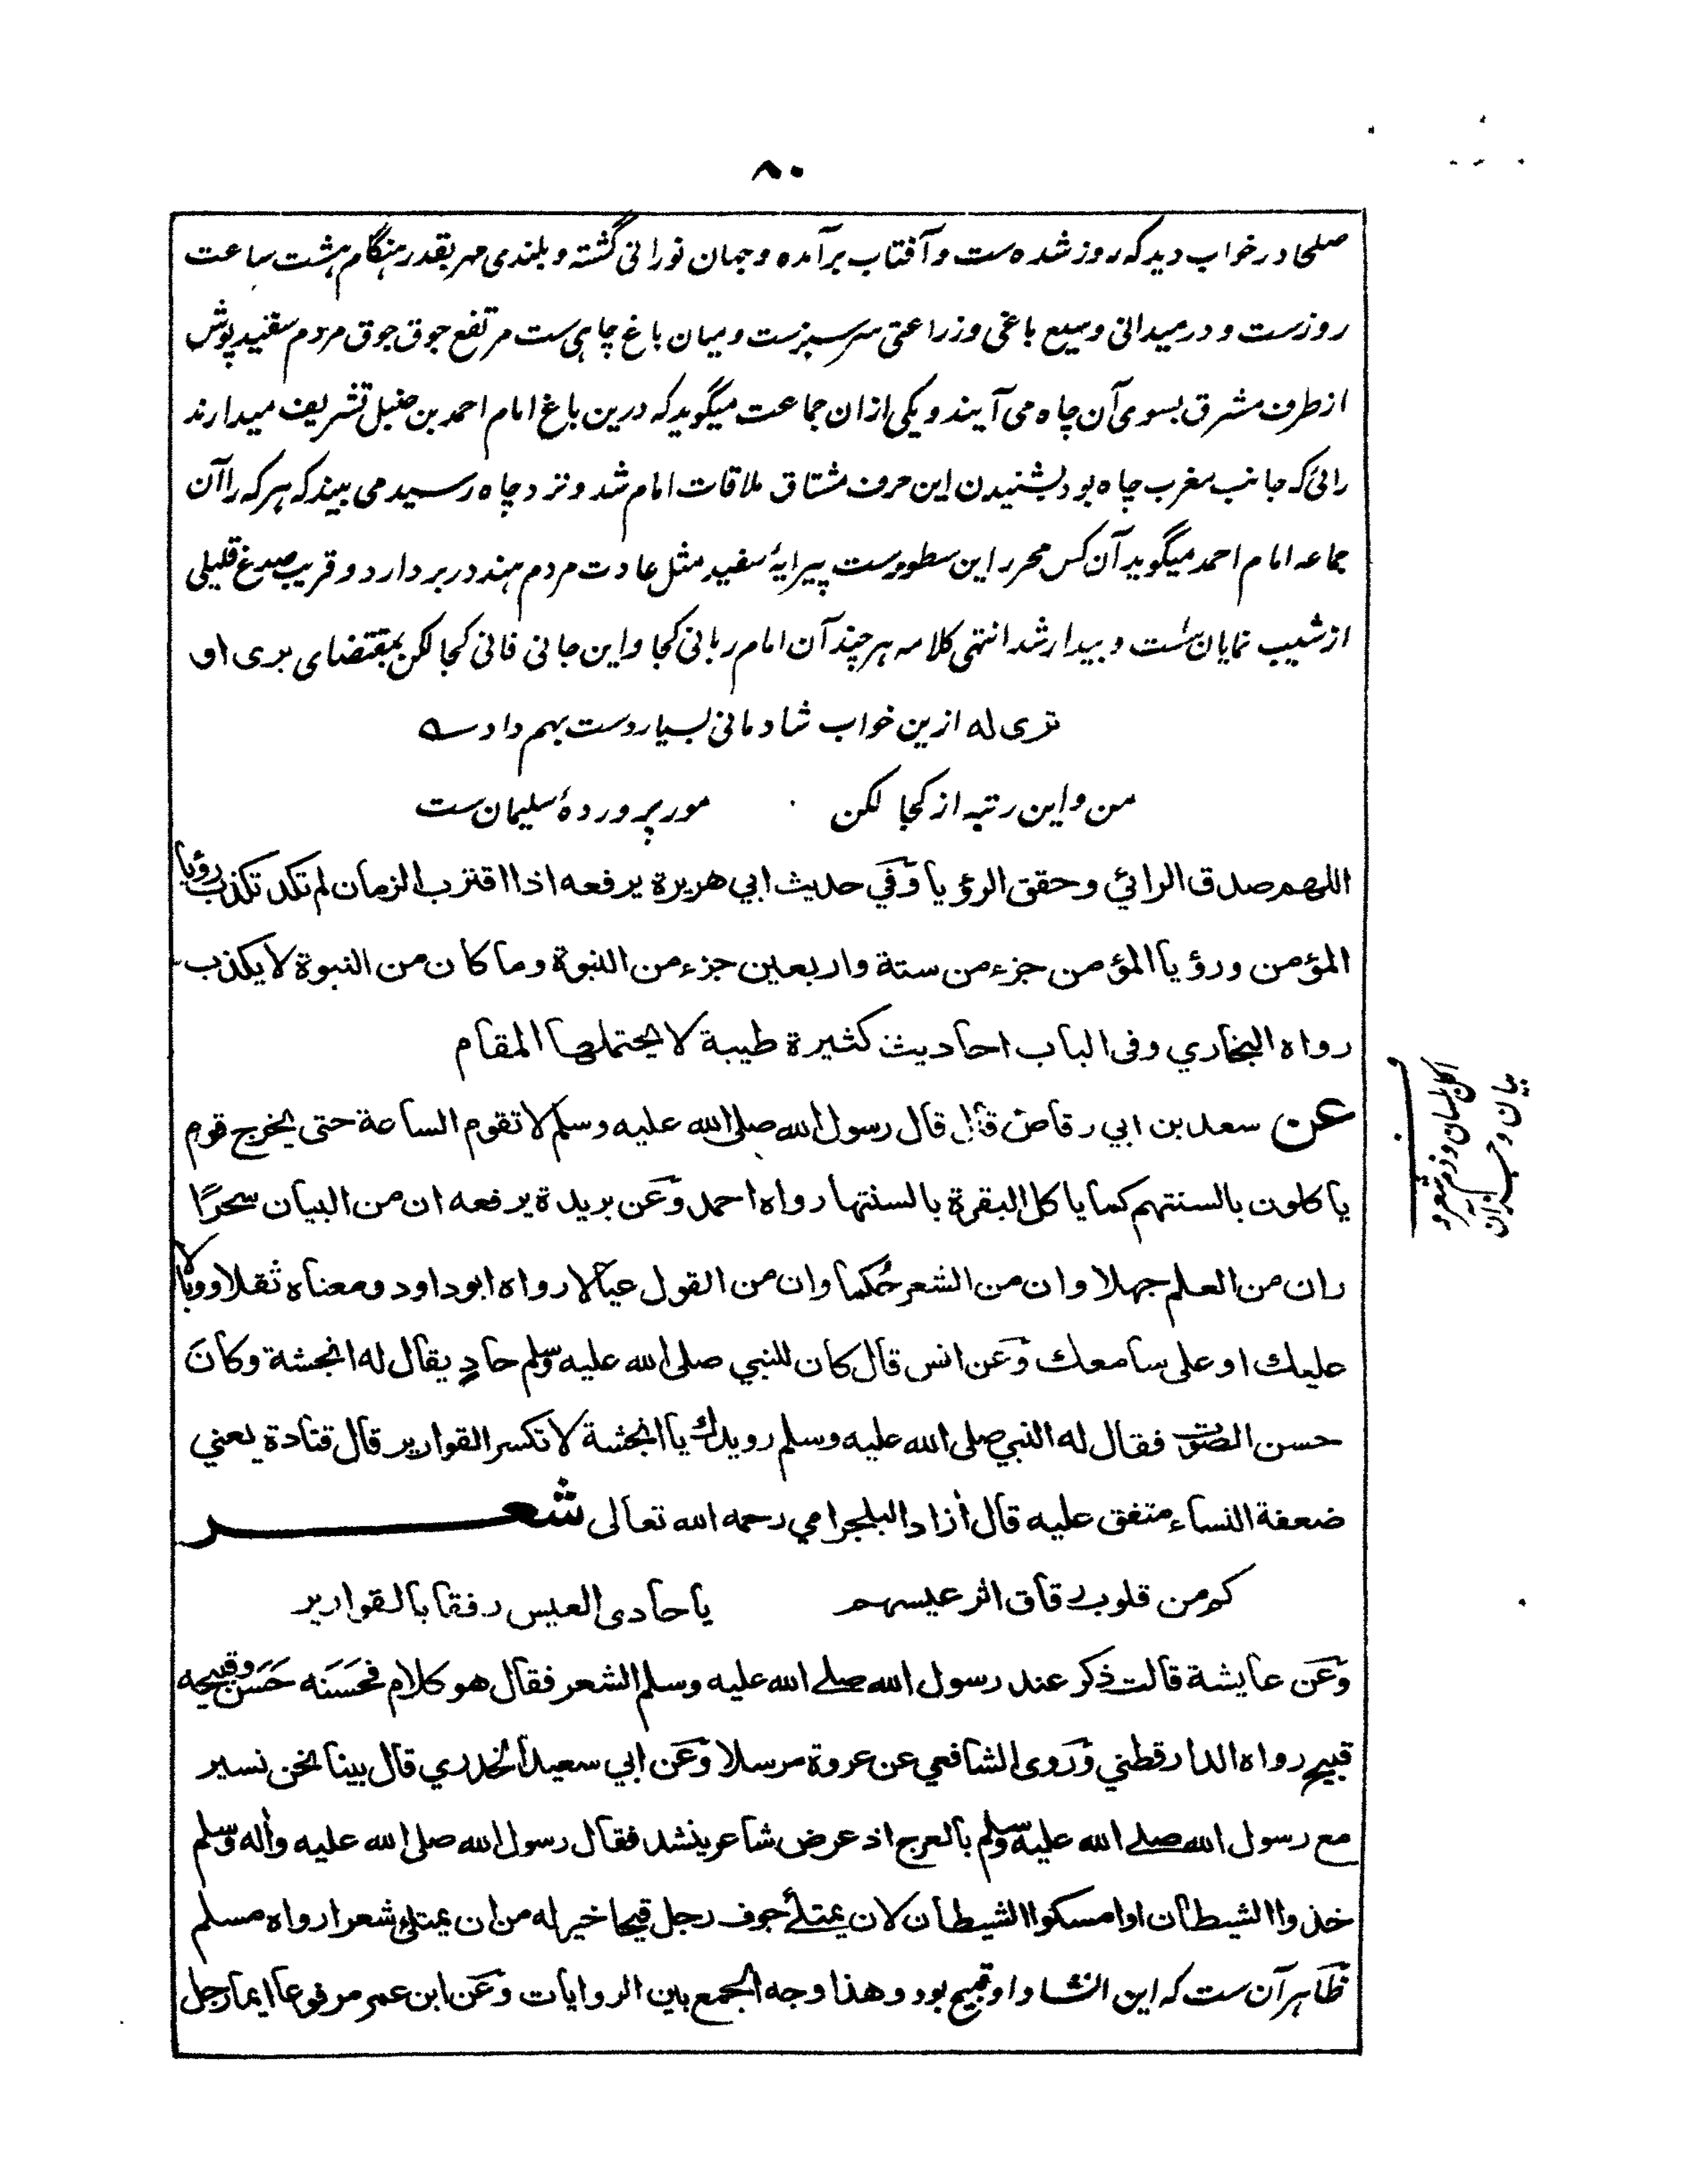 ۸۰
صلحا در خواب دید که روز شده ست و آفتاب برآمده و جهان نورانی گشته و بلندی مهر بقدر هنگام هشت ساعت
روزست و در میدانی وسیع باغی وزراعتی سرسبزست و میان باغ چاهی ست مرتفع جوق جوق مردم سفید پوش
از طرف مشرق بسوی آن چاه می آیند و یکی ازان جماعت میگوید که درین باغ امام احمد بن حنبل تشریف میدارند
رائی که جانب مغرب چاه بود بشنیدن این حرف مشتاق ملاقات امام شد و نزد چاه رسید می بیند که هر که را آن
جماعه امام احمد میگوید آن کس محرر این سطورست پیرایۀ سفید مثل عادت مردم هند در بر دارد و قریب صدغ قلیلی
از شیب نمایان ست و بیدار شد انتهی کلامه هر چند آن امام ربانی کجا و این جانی فانی کجا لکن بمقتضای یری او
تری له ازین خواب شادمانی بسیار دست بهم داد سه
من و این رتبه از کجا لکن مور پروردۀ سلیمان ست
اللهم صدق الرائي وحقق الرؤيا وفي حديث ابي هريرة يرفعه اذا اقترب الزمان لم تكد تكذب رؤيا
المؤمن ورؤيا المؤمن جزء من ستة واربعين جزء من النبوة وما كان من النبوة لا يكذب
رواه البخاري وفى الباب احاديث كثيرة طيبة لا يحتملها المقام
عن سعد بن ابي وقاص قال قال رسول الله صلى الله عليه وسلم لا تقوم الساعة حتى يخرج قوم
ياكلون بالسنتهم كما ياكل البقرة بالسنتها رواه احمد وعن بريدة يرفعه ان من البيان سحرًا
وان من العلم جهلا وان من الشعر حُكما وان من القول عيالا رواه ابوداود ومعناه ثقلا ووبالا
عليك او على سامعك وعن انس قال كان للنبي صلى الله عليه وسلم حادٍ يقال له انجشة وكان
حسن الصوت فقال له النبي صلى الله عليه وسلم رويدك يا انجشة لا تكسر القوارير قال قتادة يعني
ضعفة النساء متفق عليه قال أزاد البلجرامي رحمه الله تعالى شعر
كم من قلوب رقاق اثر عيسهم يا حادى العيس رفقا بالقوارير
وعن عايشة قالت ذكر عند رسول الله صلے الله عليه وسلم الشعر فقال هو كلام فحَسَنَه حَسَن وقبيحه
قبيح رواه الدارقطني وروى الشافعي عن عروة مرسلا وعن ابي سعيد الخدري قال بينا نحن نسير
مع رسول الله صلے الله عليه وسلم بالعرج اذ عرض شاعر ينشد فقال رسول الله صلى الله عليه وأله وسلم
خذوا الشيطان او امسكوا الشيطان لان يمتلئ جوف رجل قيحا خير له من ان يمتلئ شعرا رواه مسلم
ظاهر آن ست که این انشاد او قبیح بود وهذا وجه الجمع بين الروايات وعن ابن عمر مرفوعا ايما رجل
بیان وجه
اکل لسان و ذم شعر و